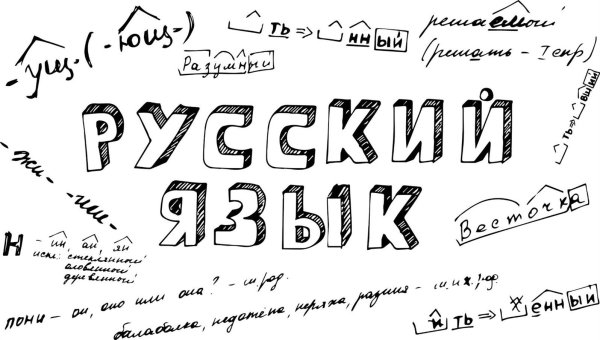 -ущ-(-ющ-)
ть⇒нный
решаемый
(решать – I спр)
Разумный
ть⇒вший
РУССКИЙ
ЯЗЫК
-жи- -ши-
Весточка
Н -ин, ан, ян
искл: стеклянный
оловянный
деревянный
пони – он, оно или она? – м.род.
балаболка, недотёпа, неряха, разиня – м. и ж. р-од.
и ть⇒енный